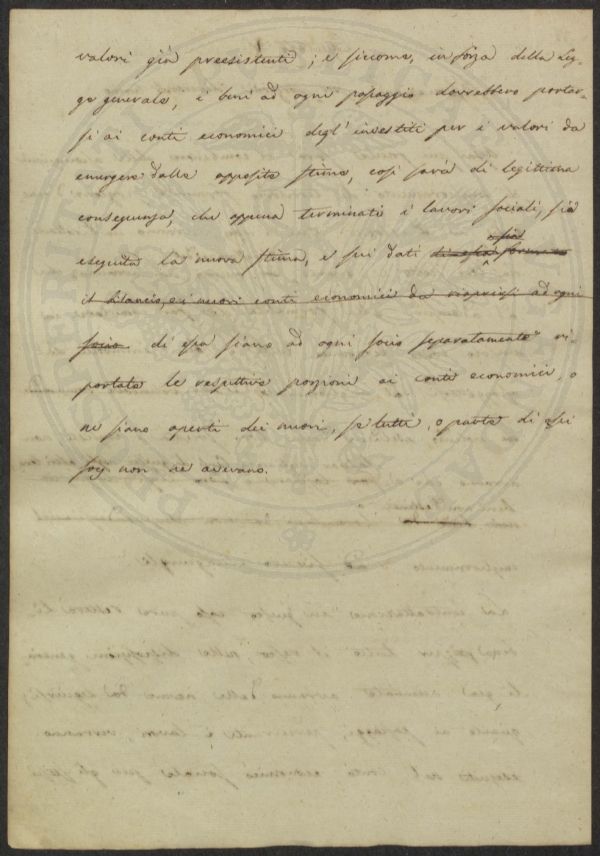 valori già preesistenti; e siccome, in forza della Leg-
ge generale, i beni ad ogni passaggio dovrebbero portar-
si ai conti economici degl'investiti per i valori da
emergere dalla apposita stima, così sarà di legittima
conseguenza, che appena terminati i lavori sociali, sia
eseguita la nuova stima, e sui dati
il bilancio, e i nuovi conti economici da riaprirsi ad ogni
socio di essa siano ad ogni socio separatamente ri-
portate le respettive porzioni ai conti economici, o
ne siano aperti dei nuovi, se tutti, o parte di essi
soci non ne avevano.